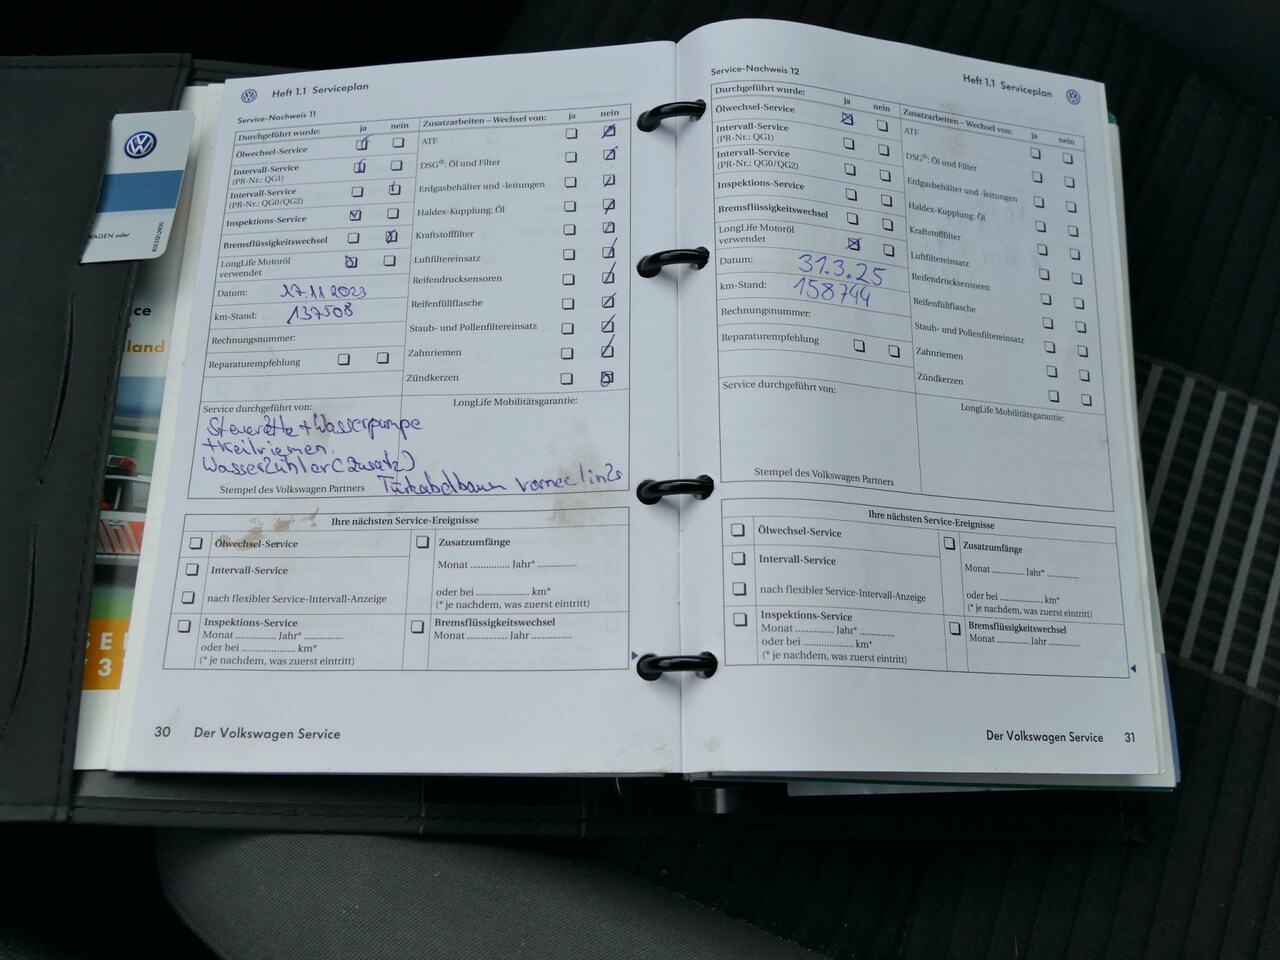 Heft 1.1 Serviceplan
Service-Nachweis 11
Durchgeführt wurde: ja nein
Ölwechsel-Service
Intervall-Service
(PR-Nr.: QG1)
Intervall-Service
(PR-Nr.: QG0/QG2)
Inspektions-Service
Bremsflüssigkeitswechsel
LongLife Motoröl
verwendet
Datum: 17.11 2023
km-Stand: 137508
Rechnungsnummer:
Reparaturempfehlung
Zusatzarbeiten – Wechsel von: ja nein
ATF
DSG®: Öl und Filter
Erdgasbehälter und -leitungen
Haldex-Kupplung: Öl
Kraftstofffilter
Luftfiltereinsatz
Reifendrucksensoren
Reifenfüllflasche
Staub- und Pollenfiltereinsatz
Zahnriemen
Zündkerzen
Service durchgeführt von:
LongLife Mobilitätsgarantie:
+ Wasserpumpe
+ Keilriemen.
(Zusatz)
Stempel des Volkswagen Partners
Ihre nächsten Service-Ereignisse
Ölwechsel-Service
Intervall-Service
nach flexibler Service-Intervall-Anzeige
Zusatzumfänge
Monat ............ Jahr* ............
oder bei ................ km*
(* je nachdem, was zuerst eintritt)
Inspektions-Service
Monat ............ Jahr* ............
oder bei ................ km*
(* je nachdem, was zuerst eintritt)
Bremsflüssigkeitswechsel
Monat ............ Jahr ............
30 Der Volkswagen Service
Service-Nachweis 12
Heft 1.1 Serviceplan
Durchgeführt wurde: ja nein
Ölwechsel-Service
Intervall-Service
(PR-Nr.: QG1)
Intervall-Service
(PR-Nr.: QG0/QG2)
Inspektions-Service
Bremsflüssigkeitswechsel
LongLife Motoröl
verwendet
Datum: 31.3.25
km-Stand: 158744
Rechnungsnummer:
Reparaturempfehlung
Zusatzarbeiten – Wechsel von: ja nein
ATF
DSG®: Öl und Filter
Erdgasbehälter und -leitungen
Haldex-Kupplung: Öl
Kraftstofffilter
Luftfiltereinsatz
Reifendrucksensoren
Reifenfüllflasche
Staub- und Pollenfiltereinsatz
Zahnriemen
Zündkerzen
Service durchgeführt von:
LongLife Mobilitätsgarantie:
Stempel des Volkswagen Partners
Ihre nächsten Service-Ereignisse
Ölwechsel-Service
Intervall-Service
nach flexibler Service-Intervall-Anzeige
Zusatzumfänge
Monat ............ Jahr* ............
oder bei ................ km*
(* je nachdem, was zuerst eintritt)
Inspektions-Service
Monat ............ Jahr* ............
oder bei ................ km*
(* je nachdem, was zuerst eintritt)
Bremsflüssigkeitswechsel
Monat ............ Jahr ............
Der Volkswagen Service 31